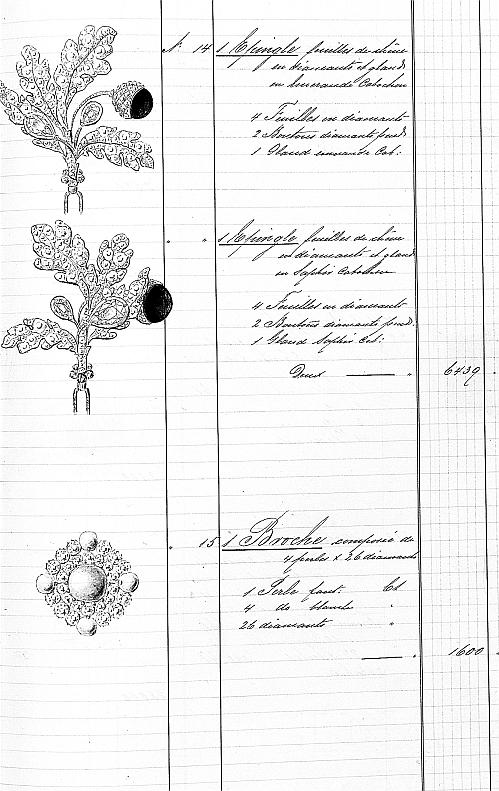 N. 14 1 Epingle feuilles de chêne
en diamants et gland
en émeraude Cabochon
4 Feuilles en diamants
2 Boutons diamants poire
1 Gland émeraude Cab:
" " 1 Epingle feuilles de chêne
en diamants et gland
en Saphir Cabochon
4 Feuilles en diamants
2 Boutons diamants
1 Gland Saphir Cab:
" 6439
" 15 1 Broche composée de
4 perles & 26 diamants
1 Perle fant. Ct
4 do blanche "
26 diamants "
" 1600